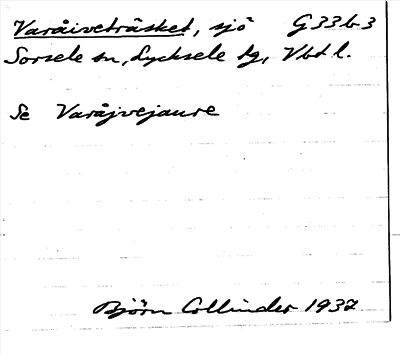 Varåiveträsket, sjö G33b3
Sorsele sn, Lycksele tg, Vbtl.
Se Varåjvejaure
Björn Collinder 1937